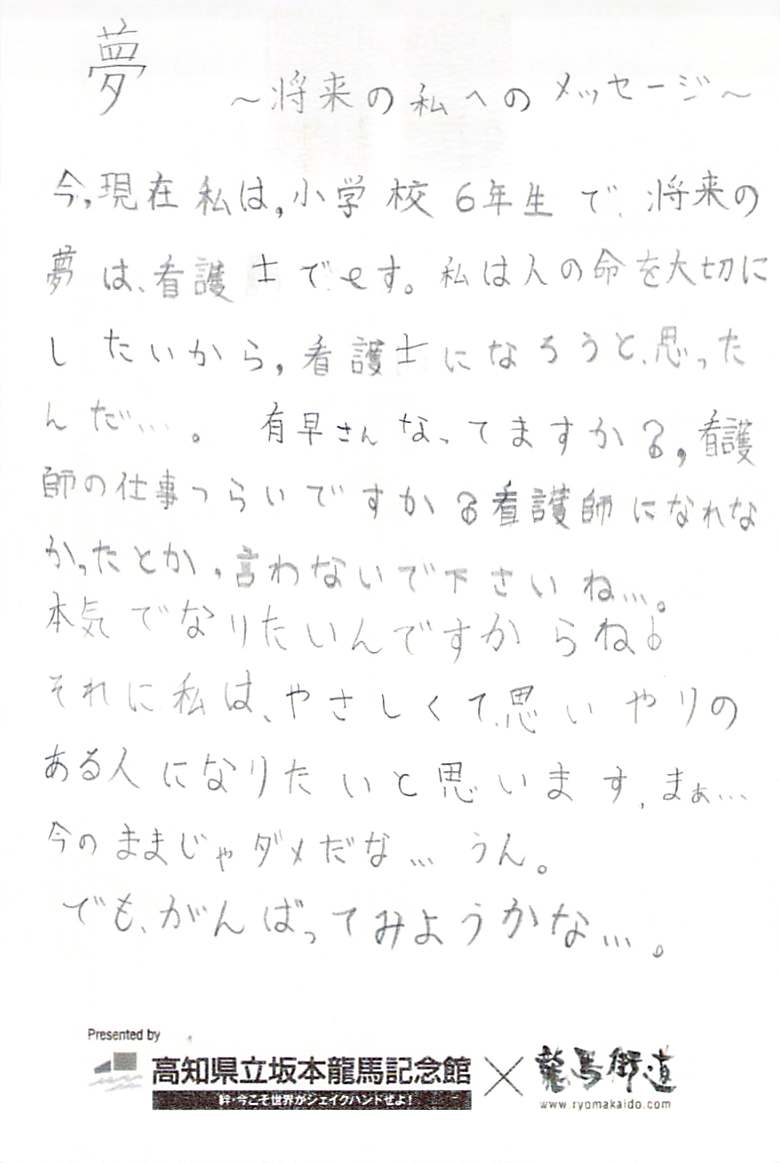 夢
～将来の私へのメッセージ～
今,現在私は,小学校6年生で、将来の
夢は、看護士です。私は人の命を大切に
したいから,看護士になろうと、思った
んだ…。有早さんなってますか?,看護
師の仕事つらいですか?看護師になれな
かったとか,言わないで下さいね…。
本気でなりたいんですからね♪
それに私は、やさしくて、思いやりの
ある人になりたいと思います、まぁ…
今のままじゃダメだな…うん。
でも、がんばってみようかな…。
Presented by
高知県立坂本龍馬記念館×龍馬街道
絆・今こそ世界がシェイクハンドぜよ!
www.ryomakaido.com